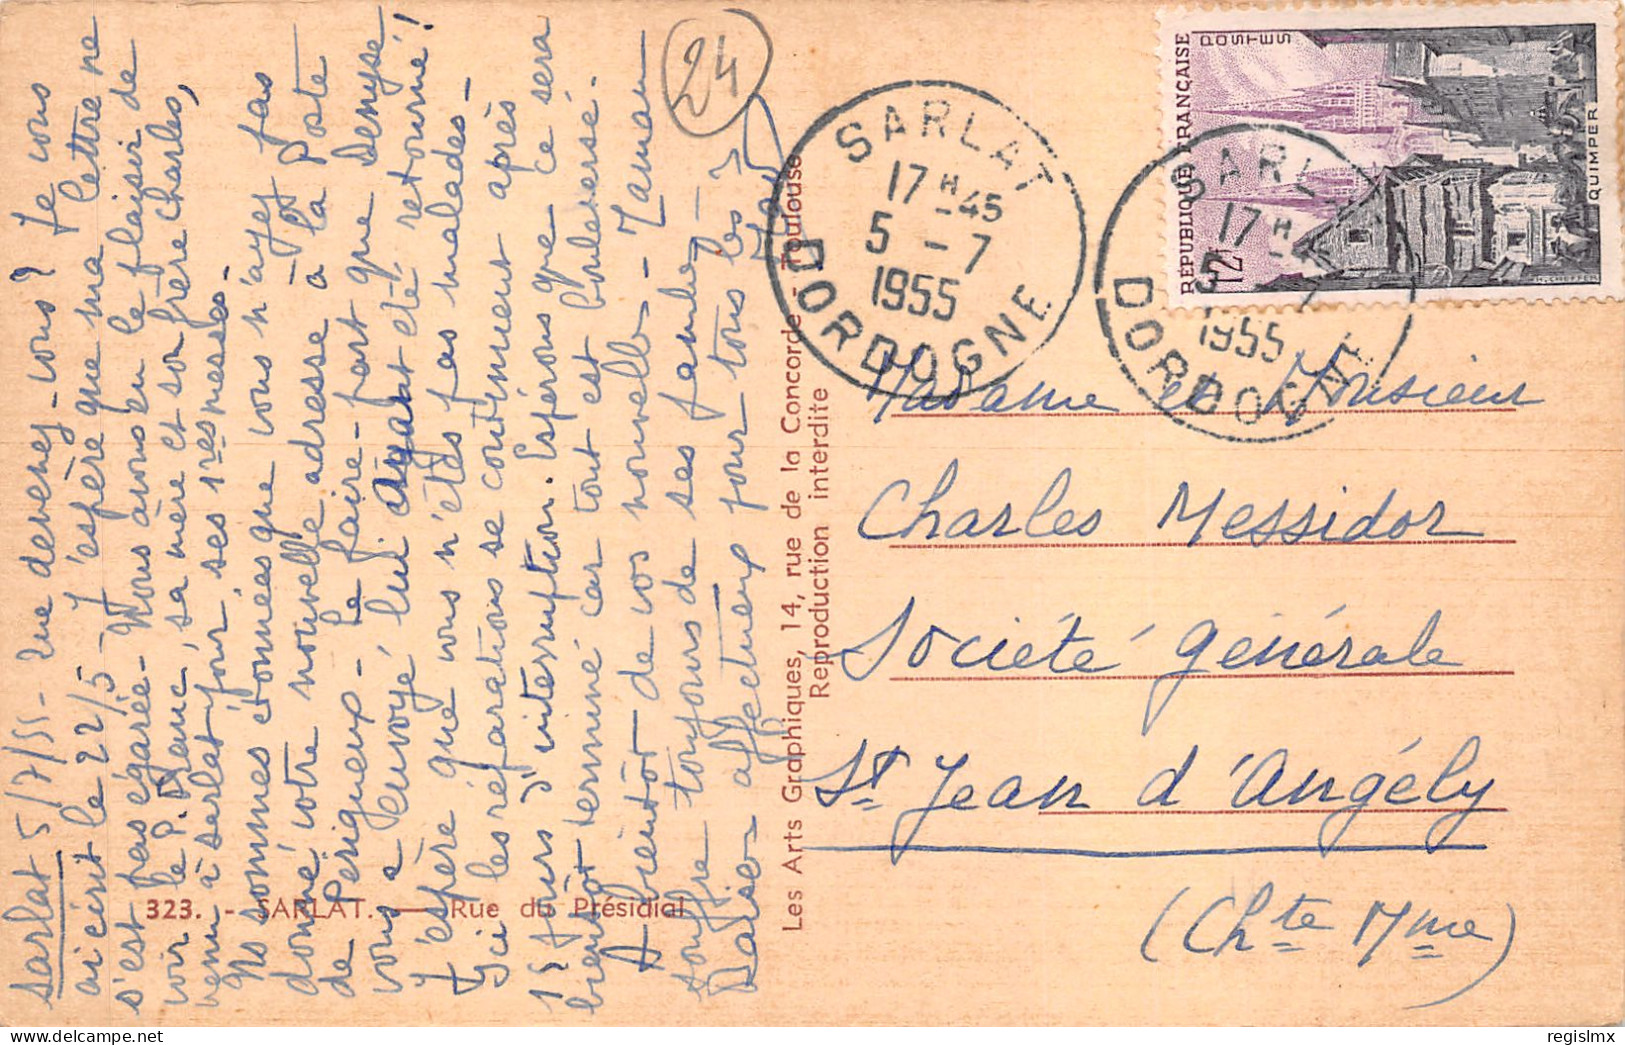 Sarlat 5/7/55 - Que devenez-vous ? Je vous
ai écrit le 22/5 - J'espère que ma lettre ne
s'est pas égarée - Nous avons eu le plaisir de
voir le P. , sa mère et son frère Charles,
venu à Sarlat pour ses 1res messes.
Nous sommes étonnées que vous n'ayez pas
donné votre nouvelle adresse à la Poste
de Périgueux - Le faire - part que Denyse
vous a envoyé lui avait été retourné !
J'espère que vous n'êtes pas malades -
Ici les réparations se continuent après
15 jours d'interruption. Espérons que ce sera
bientôt terminé car tout est bouleversé.
A bientôt de vos nouvelles - Maman
souffre toujours de ses jambes -
Baisers affectueux pour tous les 3
24
323. - SARLAT. — Rue du Présidial
Les Arts Graphiques, 14, rue de la Concorde - Toulouse
Reproduction interdite
SARLAT
17 H -45
5 - 7
1955
DORDOGNE
RÉPUBLIQUE FRANÇAISE
POSTES
12F
QUIMPER
SARLAT
17 H -45
5 - 7
1955
DORDOGNE
Madame et Monsieur
Charles Messidor
Société générale
St Jean d'Angély
(Chte Mme)
regislmx